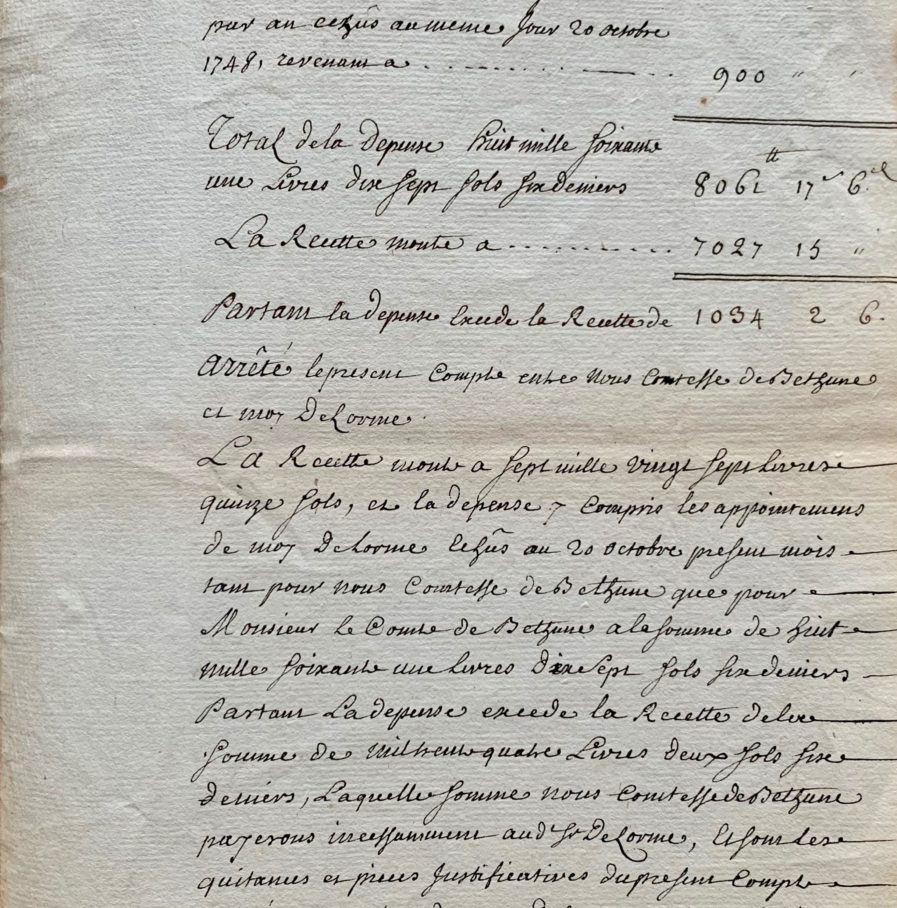 par an echûs au meme Jour 20 octobre
1748, revenant a .......... 900 " "
Total de la Depense huit mille soixante
une Livres dix sept sols six deniers 8061 ₶ 17 s 6 d
La Recette monte a .......... 7027 15 "
Partant la depense Excede la Recette de 1034 2 6.
Arrêté le present Compte entre Nous Comtesse de Bethune
et moy DeLorme.
La Recette monte a sept mille vingt sept livres
quinze sols, et la depense y Compris les appointemens
de moy DeLorme Echûs au 20 octobre present mois
tant pour nous Comtesse de Bethune que pour
Monsieur Le Comte de Bethune a la somme de huit
mille soixante une livres Dix Sept sols six deniers
Partant La depense excede la Recette de la
somme de mil trente quatre Livres deux sols six
deniers, Laquelle somme nous Comtesse de Bethune
payerons incessamment aud. Sr DeLorme, Et sont les
quitances et pieces Justificatives du present Compte